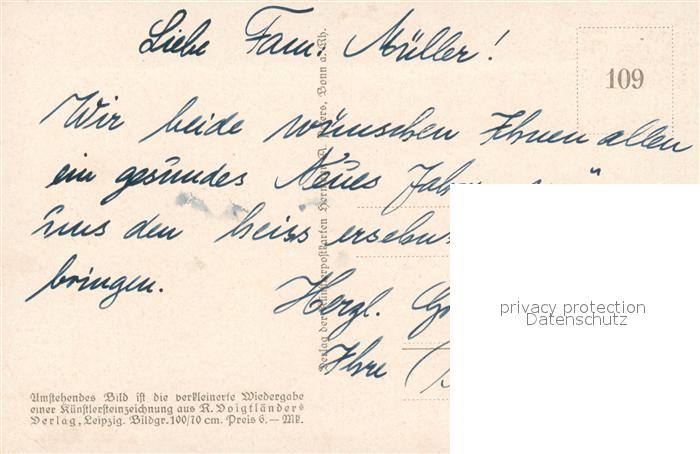 Liebe Fam. Müller!
109
Wir beide wünschen Ihnen allen
ein gesundes Neues
uns den heiss
bringen.
Herzl.
Ihre
privacy protection
Datenschutz
Verlag der Künstlerpostkarten Hermann A. Peters, Bonn a. Rh.
Umstehendes Bild ist die verkleinerte Wiedergabe
einer Künstlersteinzeichnung aus R. Voigtländers
Verlag, Leipzig. Bildgr. 100/70 cm. Preis 6.— Mk.